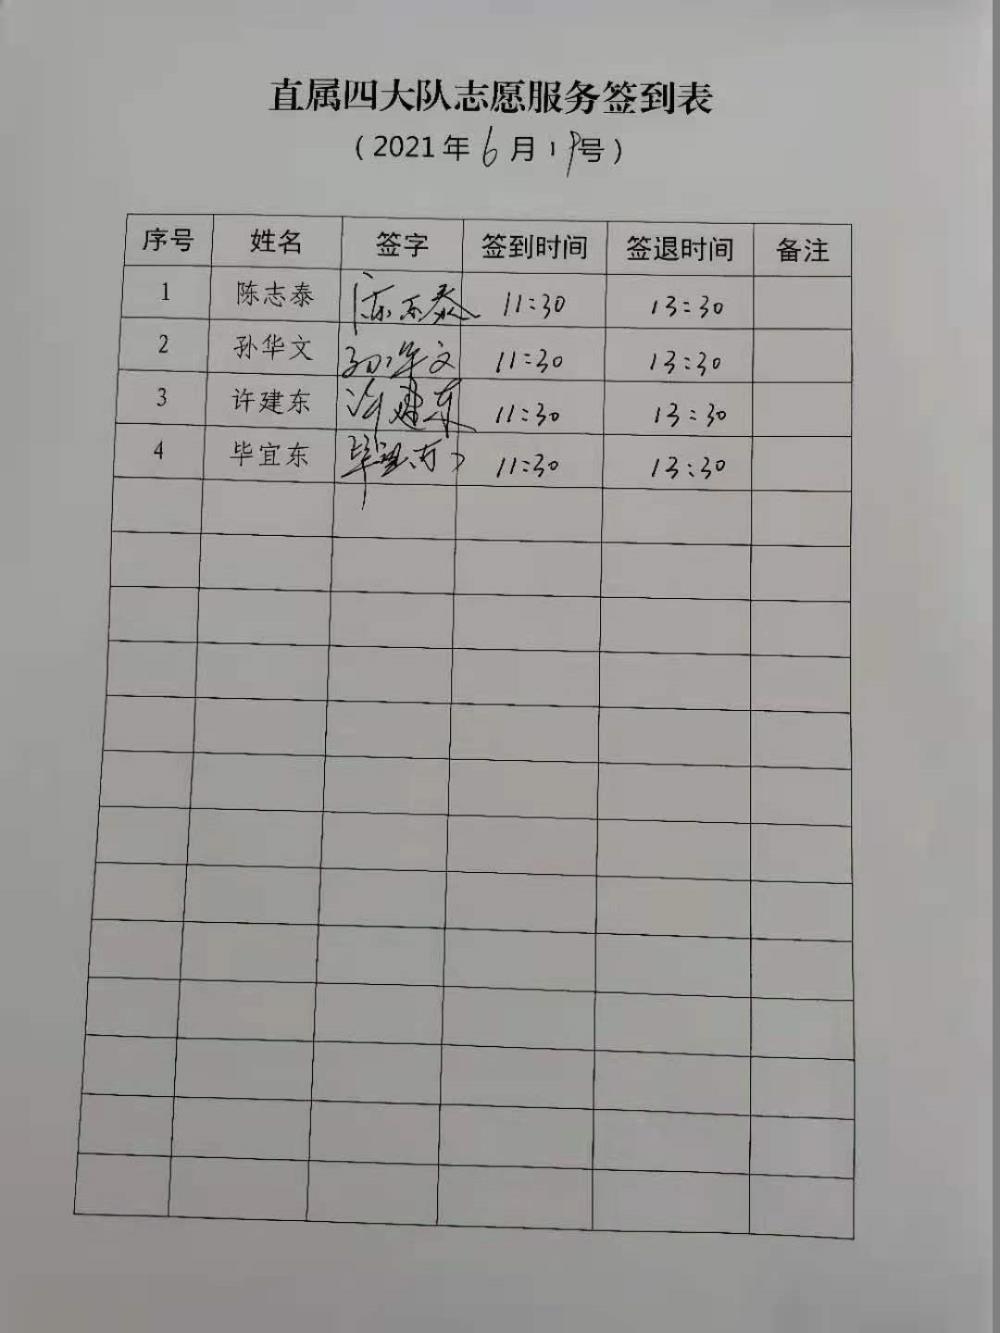 直属四大队志愿服务签到表
（2021年6月19号）
序号 姓名 签字 签到时间 签退时间 备注
1 陈志泰 陈志泰 11:30 13:30
2 孙华文 孙华文 11:30 13:30
3 许建东 许建东 11:30 13:30
4 毕宜东 毕宜东 11:30 13:30